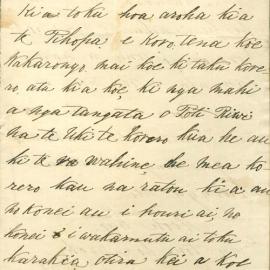 Kia toku hoa aroha kia
te Pihopa, e koro, tena koe
Wakarongo mai koe ki taku kore
ro, atu kia koe, ki nga mahi
a nga tangata o Poti Kiwi
na te Uki te korero kua he au
ki te wahine, he mea ko
rero kau na ratou kia au
no konei au i houri ai, no
konei i wakamutu ai toku
karakia, otira kei a koe